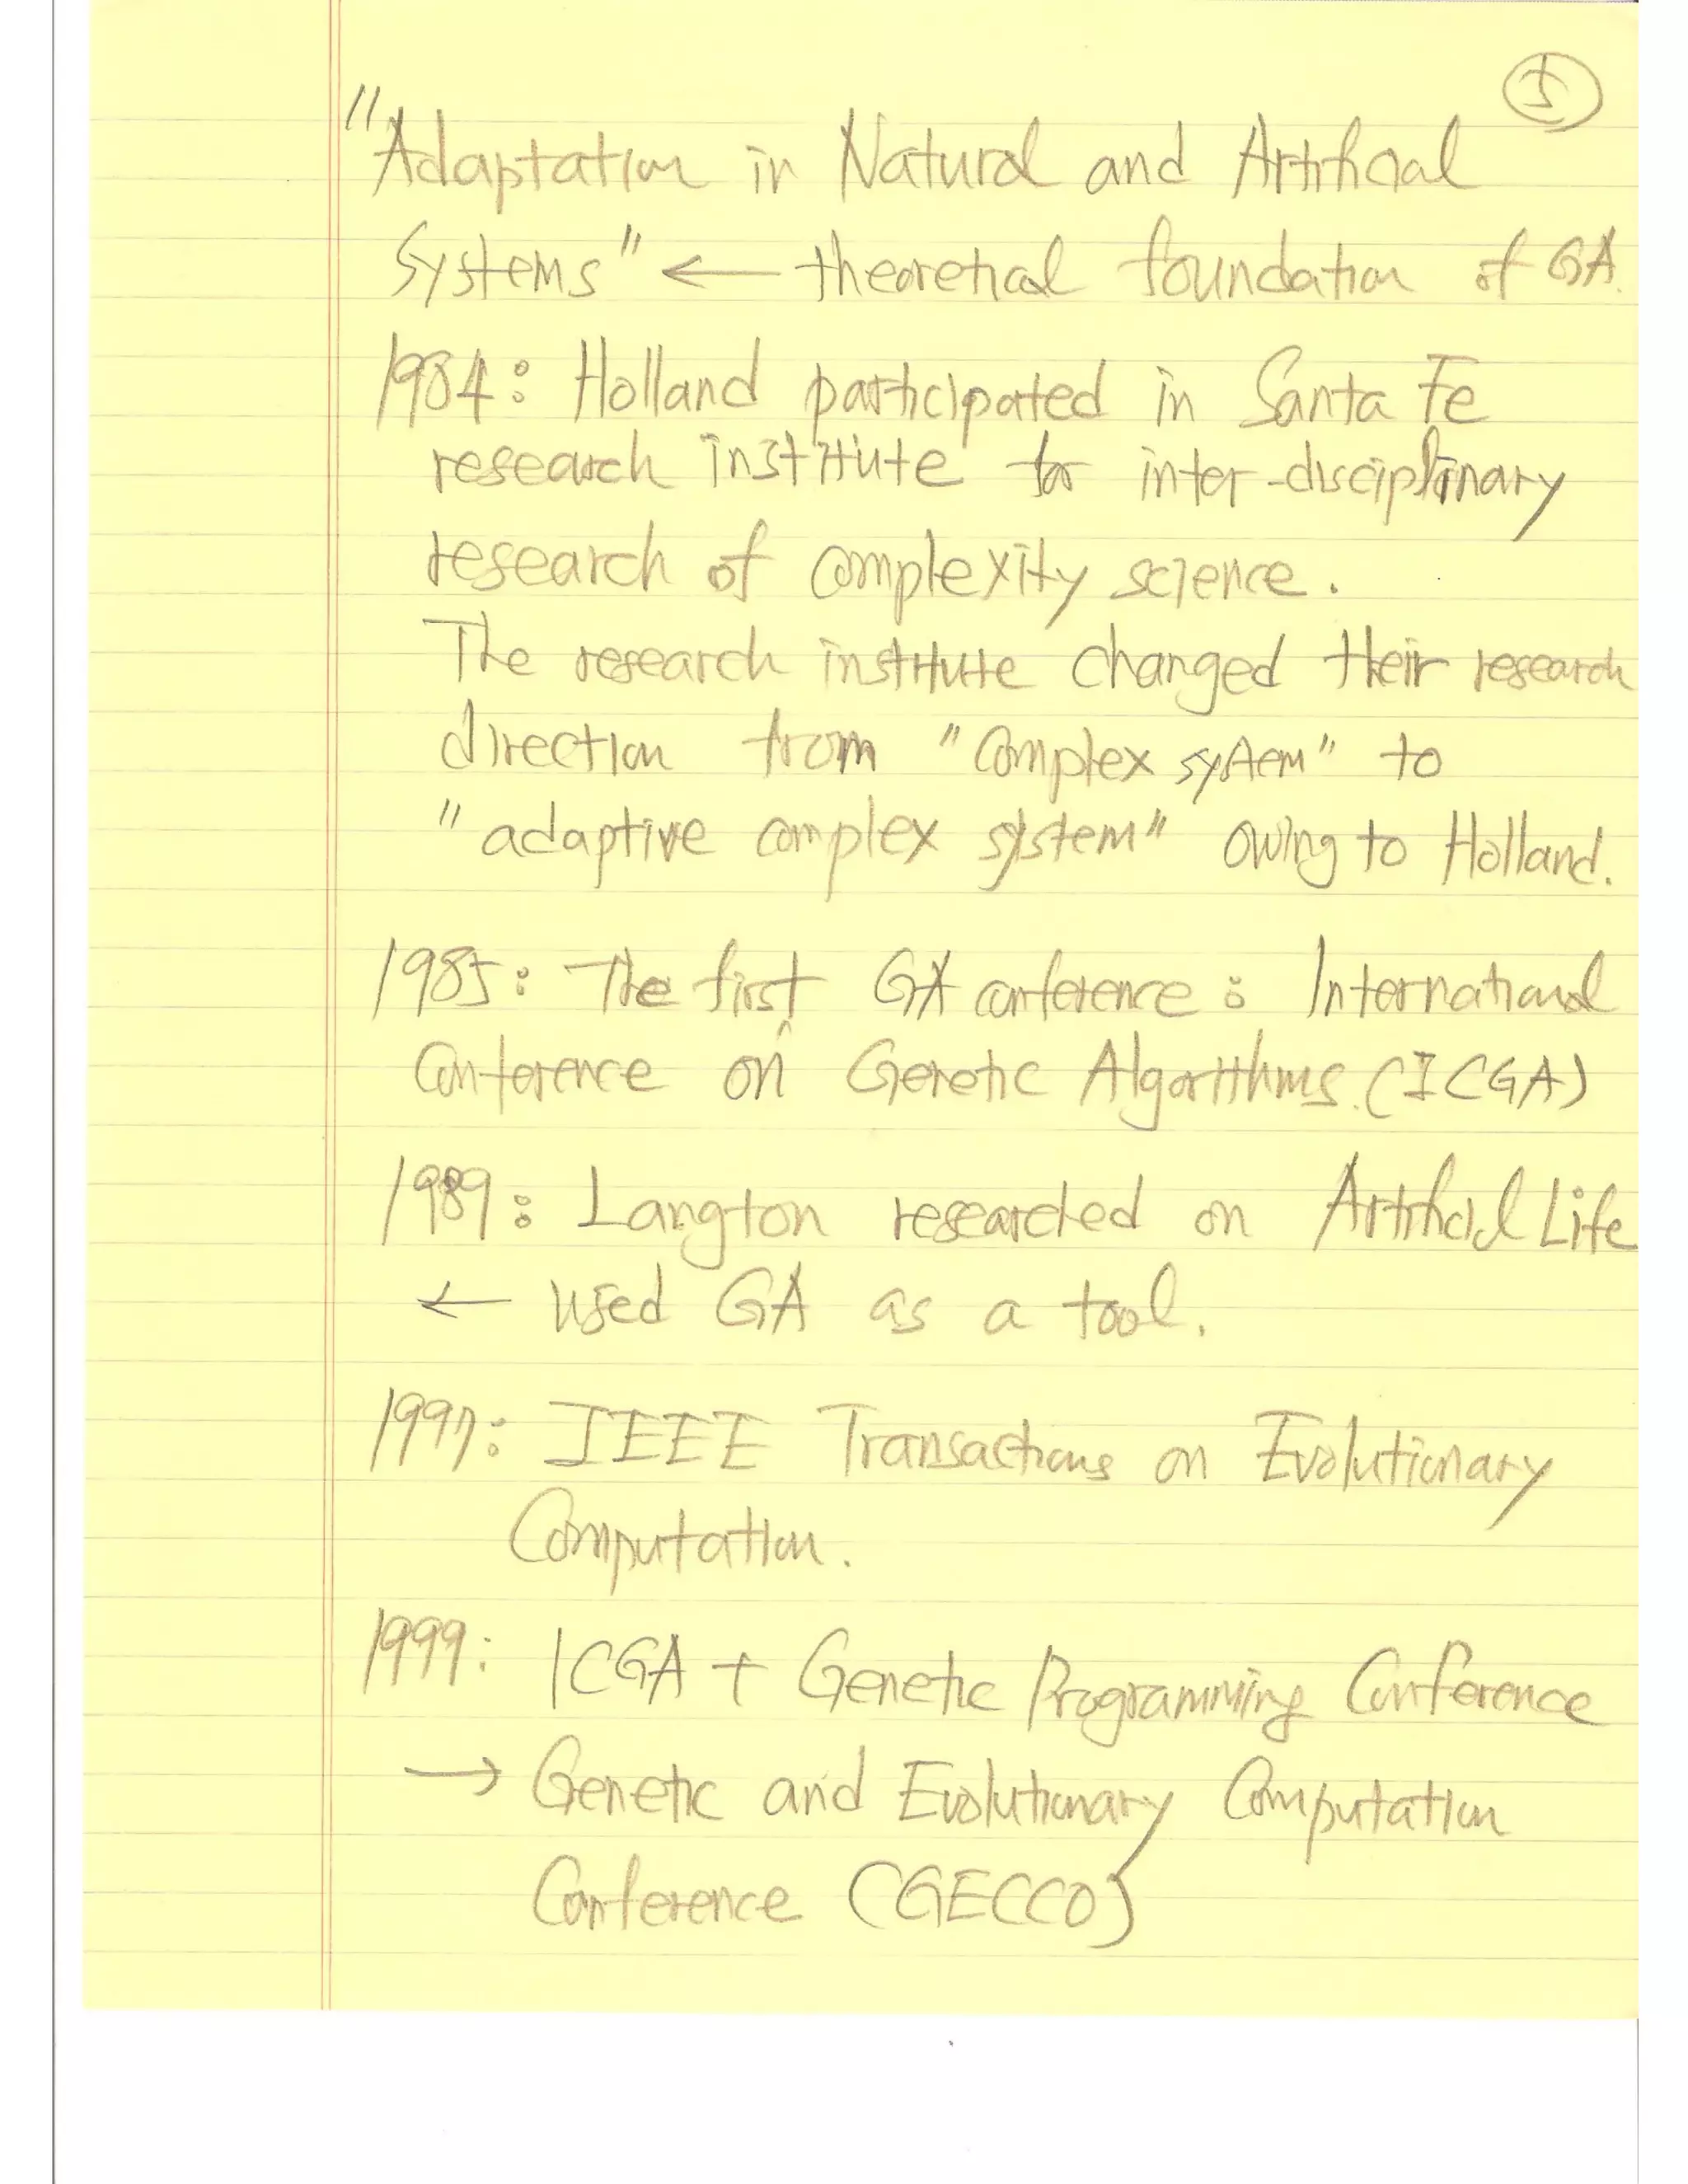 5
"Adaptation in Natural and Artificial
Systems" ← theoretical foundation of GA.
1984: Holland participated in Santa Fe
research institute for inter-disciplinary
research of complexity science.
The research institute changed their research
direction from "complex system" to
"adaptive complex system" owing to Holland.
1985: The first GA conference: International
Conference on Genetic Algorithms. (ICGA)
1989: Langton researched on Artificial Life
← used GA as a tool.
1997: IEEE Transactions on Evolutionary
Computation.
1999: ICGA + Genetic Programming Conference
→ Genetic and Evolutionary Computation
Conference (GECCO)